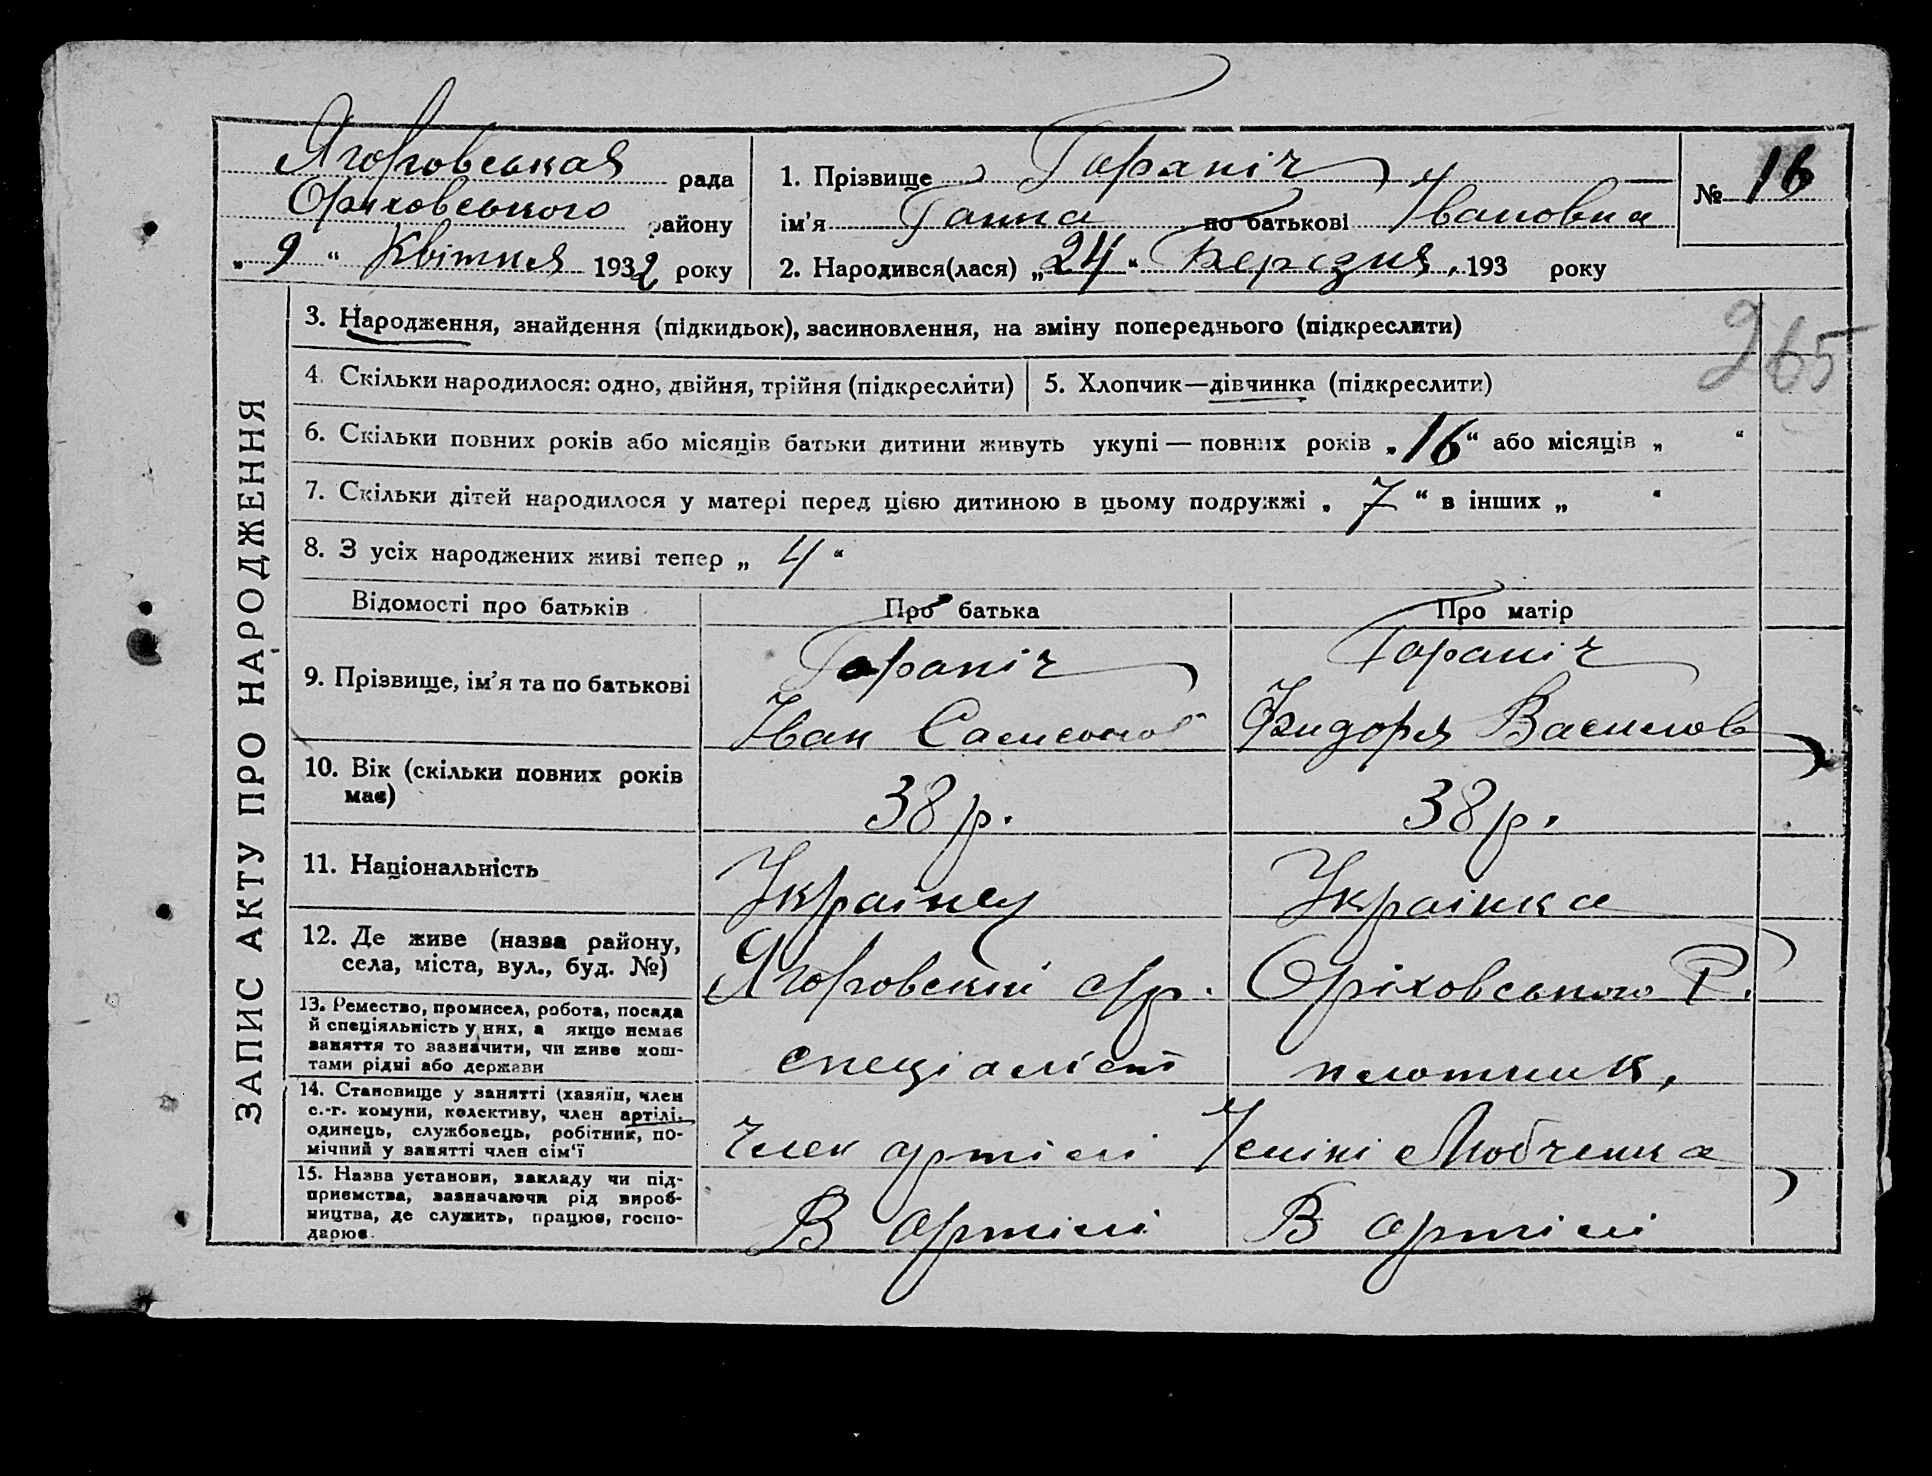 Ягоровськая рада
Оріховського району
„ 9 “ Квітня 1932 року
1. Прізвище Гараніч
ім'я Ганна по батькові Івановна
2. Народився(лася) „24“ Березня 193 року
№ 16
265
ЗАПИС АКТУ ПРО НАРОДЖЕННЯ
3. Народження, знайдення (підкидьок), засиновлення, на зміну попереднього (підкреслити)
4. Скільки народилося: одно, двійня, трійня (підкреслити)
5. Хлопчик—дівчинка (підкреслити)
6. Скільки повних років або місяців батьки дитини живуть укупі — повних років „16“ або місяців „ “
7. Скільки дітей народилося у матері перед цією дитиною в цьому подружжі „ 7 “ в інших „ “
8. З усіх народжених живі тепер „ 4 “
Відомості про батьків
Про батька
Про матір
9. Прізвище, ім'я та по батькові
Гараніч
Іван Самсонов
Гараніч
Фидоря Васильов
10. Вік (скільки повних років
має)
38 р.
38 р.
11. Національність
Українец
Українка
12. Де живе (назва району,
села, міста, вул., буд. №)
Ягоровский с/р. Оріховського Р.
13. Ремество, промисел, робота, посада
й спеціяльність у них, а якщо немає
заняття то зазначити, чи живе кош-
тами рідні або держави
специаліст плотник,
14. Становище у занятті (хазяїн, член
с.-г. комуни, колективу, член артілі,
одинець, службовець, робітник, по-
мічний у занятті член сім'ї
Член артілі Імені Любченка
15. Назва установи, закладу чи під-
приємства, зазначаючи рід вироб-
ництва, де служить, працює, госпо-
дарює.
В артілі
В артілі